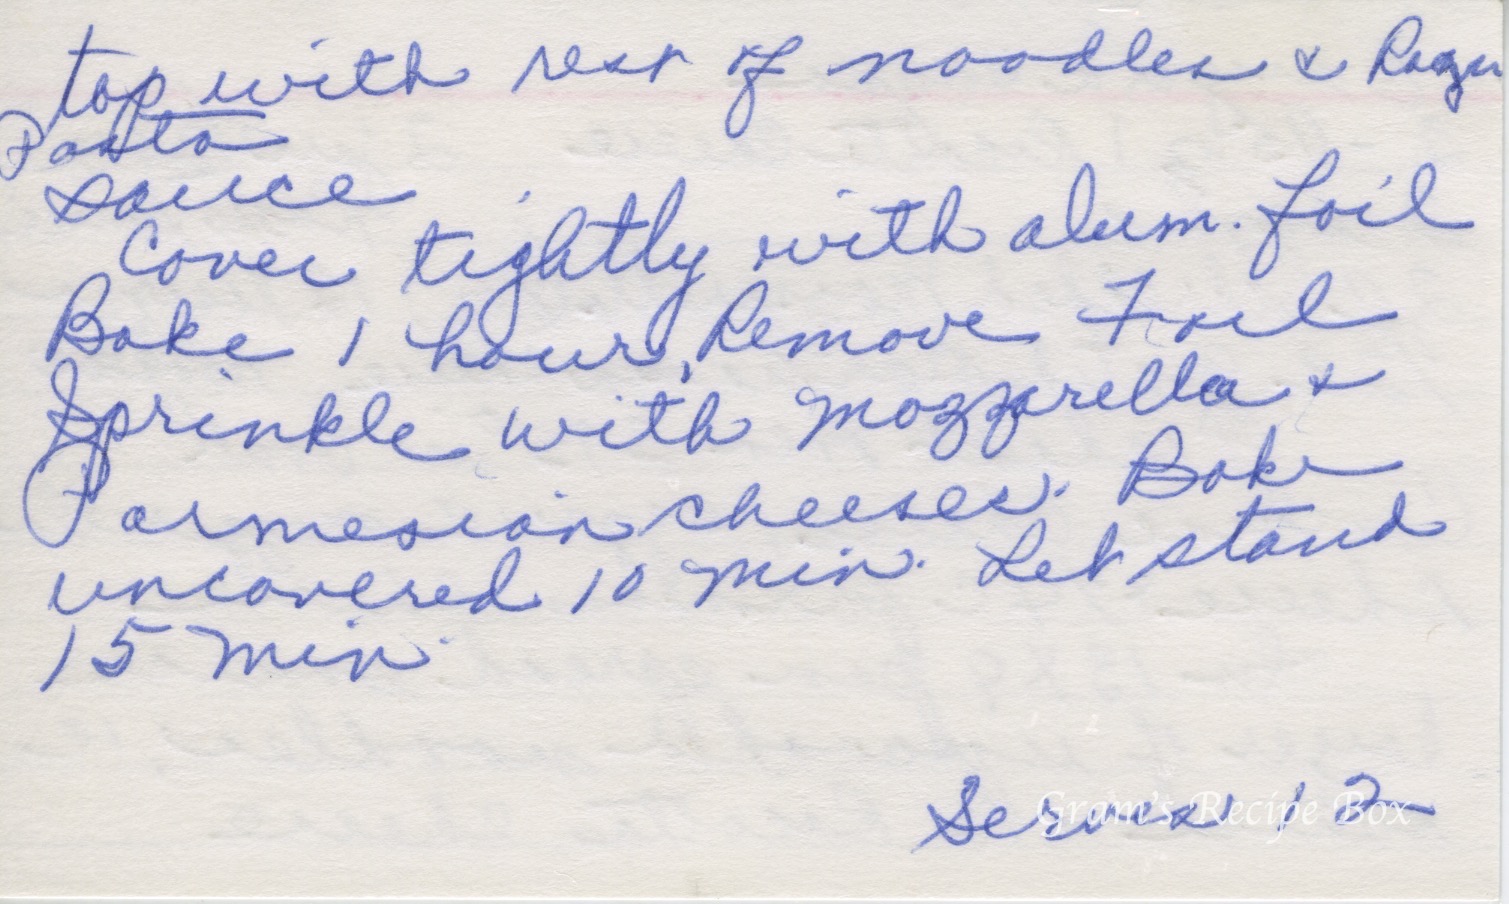 top with rest of noodles & Ragu
Pasta
sauce
Cover tightly with alum. foil
Bake 1 hour, Remove Foil
Sprinkle with mozzarella &
Parmesian cheeses. Bake
uncovered 10 min. Let stand
15 min.
Serves 12
Gram's Recipe Box